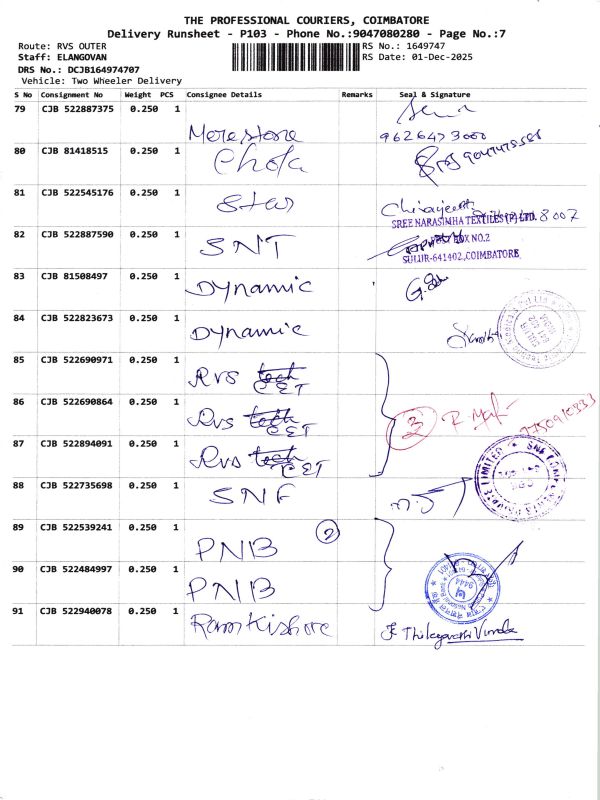 THE PROFESSIONAL COURIERS, COIMBATORE
Delivery Runsheet - P103 - Phone No.:9047080280 - Page No.:7
Route: RVS OUTER
RS No.: 1649747
Staff: ELANGOVAN
RS Date: 01-Dec-2025
DRS No.: DCJB164974707
Vehicle: Two Wheeler Delivery
S No Consignment No Weight PCS Consignee Details Remarks Seal & Signature
79 CJB 522887375 0.250 1 Morestore
80 CJB 81418515 0.250 1 Chola
81 CJB 522545176 0.250 1 Star
SREE NARASIMHA TEXTILES (P) LTD.
82 CJB 522887590 0.250 1 SNT
POST BOX NO.2
SULUR-641402, COIMBATORE
83 CJB 81508497 0.250 1 Dynamic
84 CJB 522823673 0.250 1 Dynamic
85 CJB 522690971 0.250 1 Rvs tech CET
86 CJB 522690864 0.250 1 Rvs tech CET
3
87 CJB 522894091 0.250 1 Rvs tech CET
88 CJB 522735698 0.250 1 SNF
89 CJB 522539241 0.250 1 PNB
2
90 CJB 522484997 0.250 1 PNB
91 CJB 522940078 0.250 1 Ramkishore